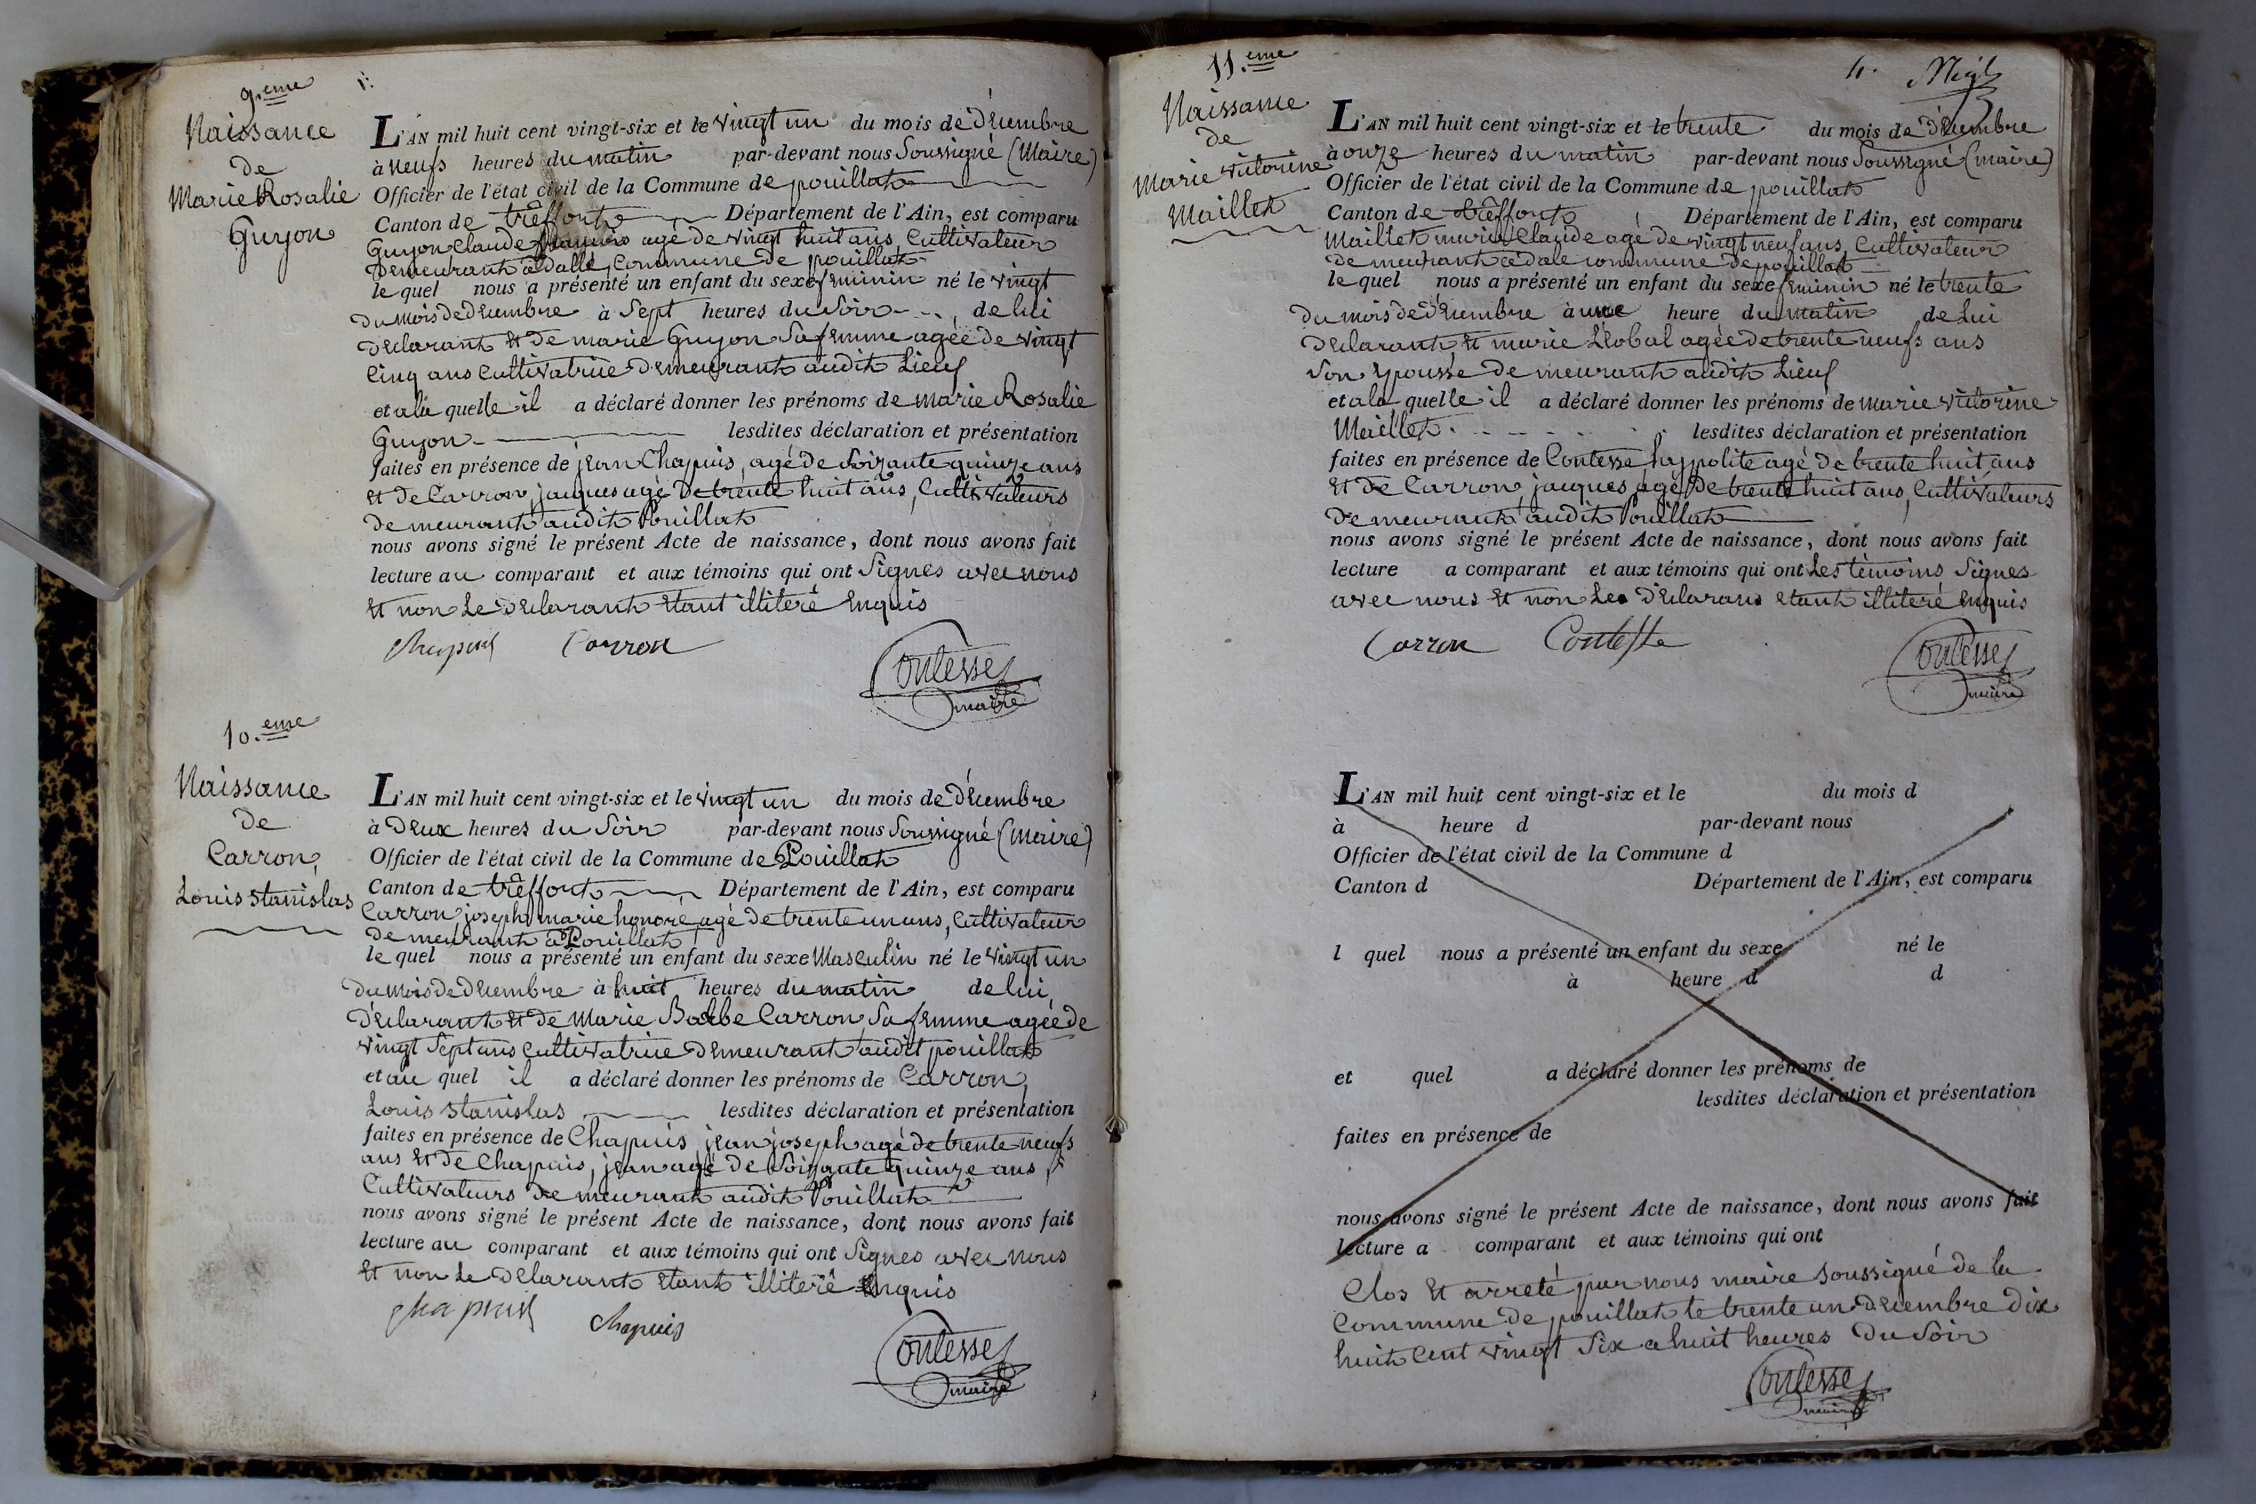 9.eme
Naissance
de
Marie Rosalie
Guyon
L'AN mil huit cent vingt-six et le vingt un du mois de Décembre
à neufs heures du matin par-devant nous Soussigné (Maire)
Officier de l'état civil de la Commune de pouillat
Canton de trêffort Département de l'Ain, est comparu
Guyon Claude agé de vingt huit ans, Cultivateur
Demeurant a dalle, Commune de pouillat
le quel nous a présenté un enfant du sexe feminin né le vingt
du mois de Décembre à Sept heures du Soir de lui
Déclarant et de marie Guyon Sa femme agée de vingt
Cinq ans Cultivatrice Demeurant audit Lieuf
et a la quelle il a déclaré donner les prénoms de Marie Rosalie
Guyon lesdites déclaration et présentation
faites en présence de jean Chapuis, agé de Soixante quinze ans
et de Carron, jacques agé de trente huit ans, Cultivateurs
Demeurant audit Pouillat
nous avons signé le présent Acte de naissance, dont nous avons fait
lecture au comparant et aux témoins qui ont Signés avec nous
et non le Déclarant etant illiteré enquis
Chapuis Carron
Contesse
maire
10.eme
Naissance
de
Carron,
Louis stanislas
L'AN mil huit cent vingt-six et le vingt un du mois de Décembre
à Deux heures du Soir par-devant nous Soussigné (Maire)
Officier de l'état civil de la Commune de Pouillat
Canton de trêffort Département de l'Ain, est comparu
Carron joseph marie honoré agé de trente un ans, Cultivateur
demeurant a Pouillat
le quel nous a présenté un enfant du sexe Masculin né le vingt un
du mois de Décembre à huit heures du matin de lui
Déclarant et de Marie Barbe Carron, Sa femme agée de
vingt Sept ans Cultivatrice Demeurant audit pouillat
et au quel il a déclaré donner les prénoms de Carron,
Louis stanislas lesdites déclaration et présentation
faites en présence de Chapuis jean joseph agé de trente neufs
ans et de Chapuis, jean agé de Soixante quinze ans,
Cultivateurs Demeurant audit Pouillat
nous avons signé le présent Acte de naissance, dont nous avons fait
lecture au comparant et aux témoins qui ont Signés avec nous
et non le Déclarant etant illiteré enquis
Chapuis Chapuis
Contesse
maire
11.eme
Naissance
de
Marie victorine
Maillet
4.
L'AN mil huit cent vingt-six et le trente du mois de Décembre
à onze heures du matin par-devant nous Soussigné (maire)
Officier de l'état civil de la Commune de pouillat
Canton de trêffort Département de l'Ain, est comparu
Maillet marie Claude agé de vingt neuf ans, Cultivateur
demeurant a dale commune de pouillat
le quel nous a présenté un enfant du sexe feminin né le trente
du mois de Décembre à une heure du matin de Lui
Déclarant et marie agée de trente neufs ans
Son epousse demeurant audit Lieuf
et a la quelle il a déclaré donner les prénoms de Marie victorine
Maillet lesdites déclaration et présentation
faites en présence de Contesse hyppolite agé de trente huit ans
et de Carron, jacques agé de trente huit ans, Cultivateurs
Demeurant audit Pouillat
nous avons signé le présent Acte de naissance, dont nous avons fait
lecture a comparant et aux témoins qui ont Les témoins Signes
avec nous et non Les Déclarans etant illiteré enquis
Carron Contesse
Contesse
maire
L'AN mil huit cent vingt-six et le du mois d
à heure d par-devant nous
Officier de l'état civil de la Commune d
Canton d Département de l'Ain, est comparu
l quel nous a présenté un enfant du sexe né le
à heure d d
et quel a déclaré donner les prénoms de
lesdites déclaration et présentation
faites en présence de
nous avons signé le présent Acte de naissance, dont nous avons fait
lecture a comparant et aux témoins qui ont
Clos et arreté par nous maire soussigné de la
Commune de pouillat le trente un Décembre dix
huit Cent vingt Six a huit heures du Soir
Contesse
maire